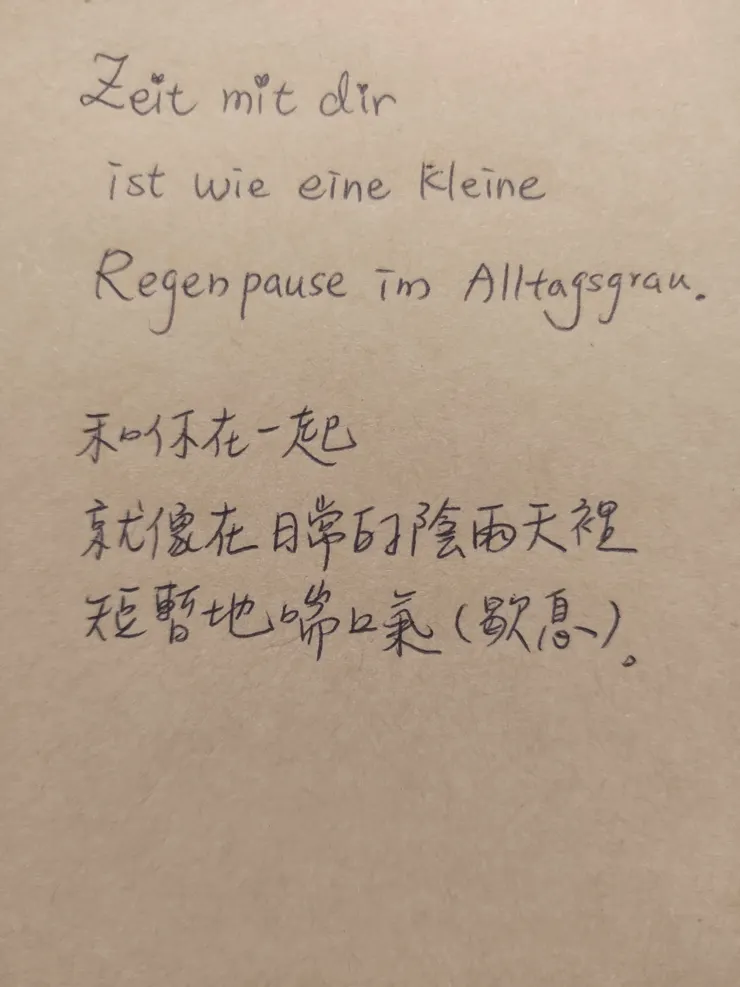 Zeit mit dir
ist wie eine kleine
Regenpause im Alltagsgrau.
和你在一起
就像在日常的陰雨天裡
短暫地喘口氣(歇息)。